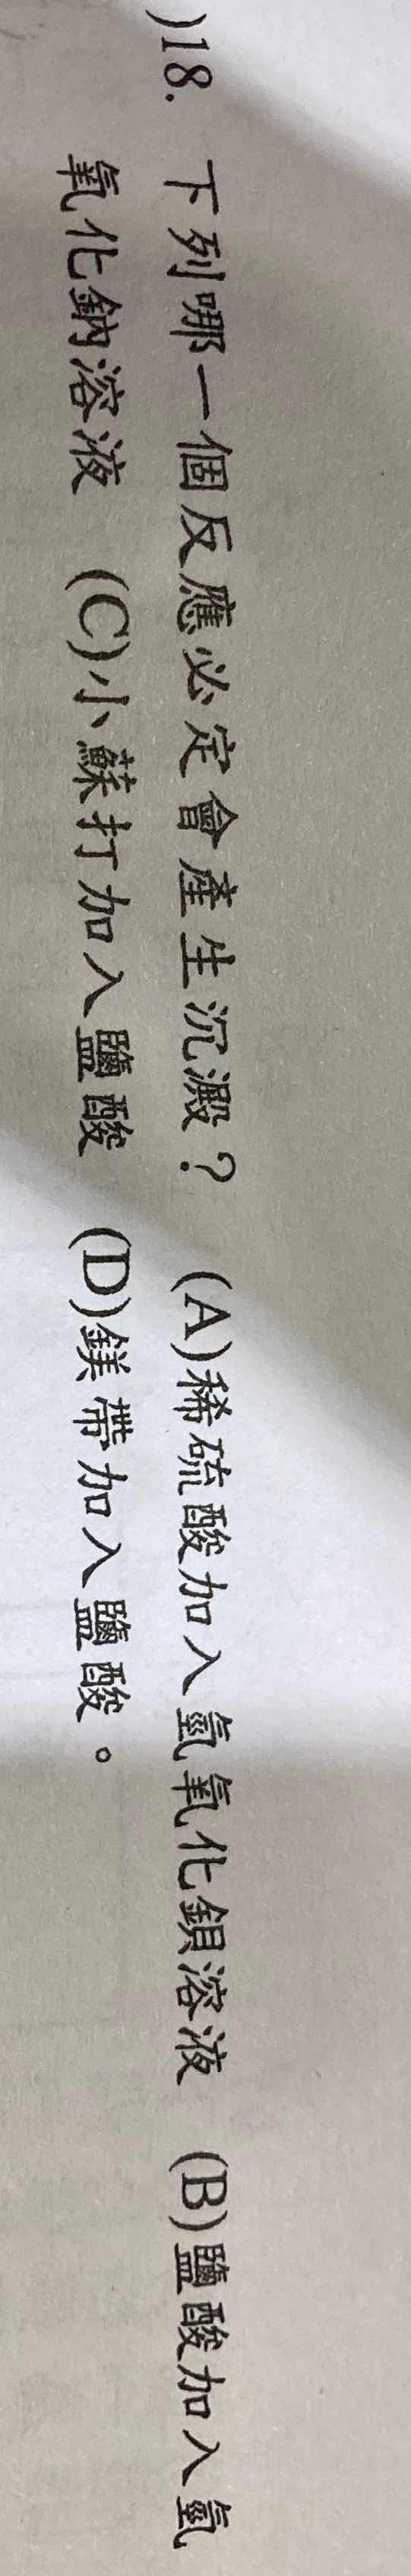 )18. 下列哪一個反應必定會產生沉澱？ (A)稀硫酸加入氫氧化鋇溶液 (B)鹽酸加入氫
氧化鈉溶液 (C)小蘇打加入鹽酸 (D)鎂帶加入鹽酸。